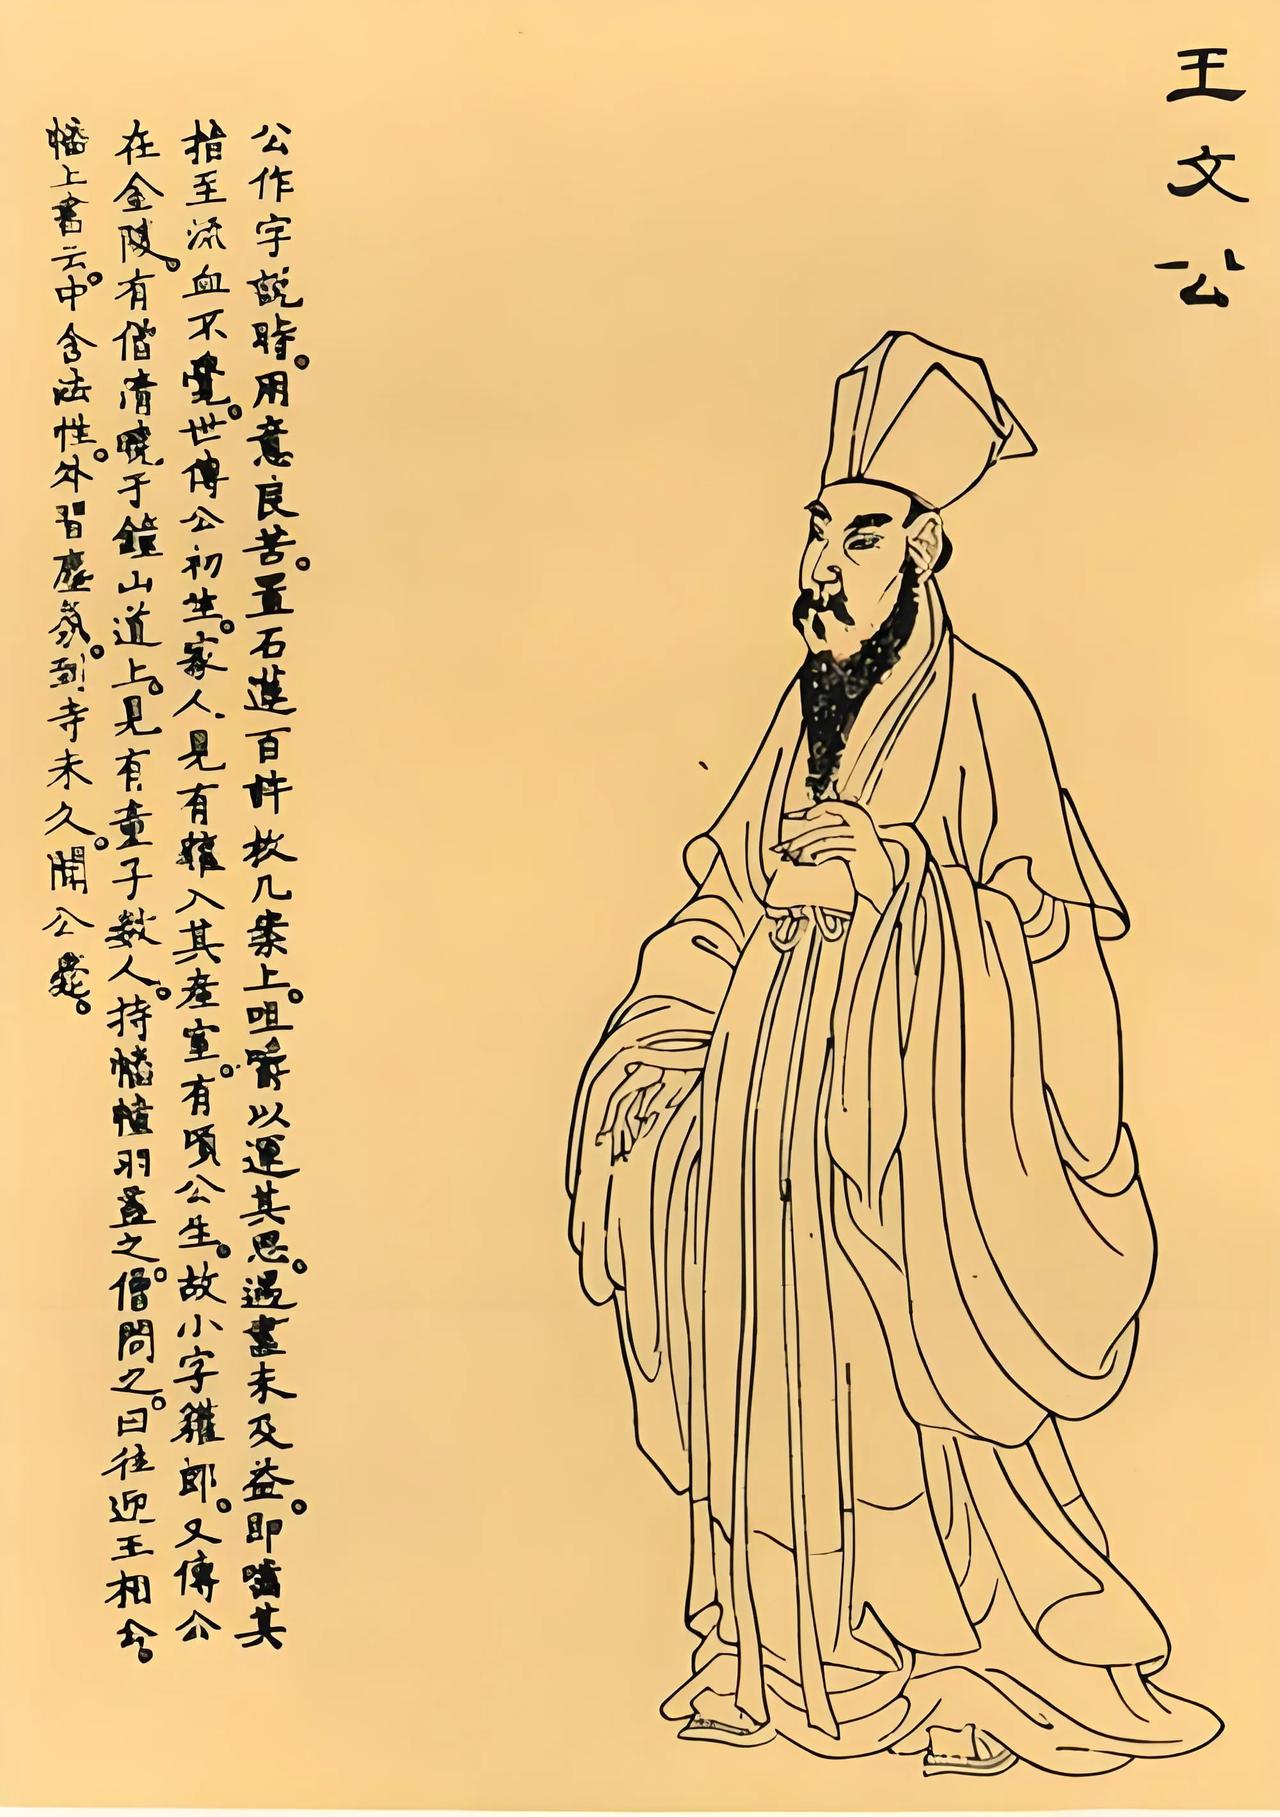 王文公
公作字説時。用意良苦。置石蓮百許枚几案上。咀嚼以運其思。遇盡未及益。即嚙其
指至流血不覺。世傳公初生。家人見有獾入其產室。有頃公生。故小字獾郎。又傳公
在金陵。有僧清曉于鐘山道上。見有童子數人。持幡幢羽蓋之。僧問之。曰往迎王相公。
幡上書云。中含法性。外習塵氛。到寺未久。聞公薨。